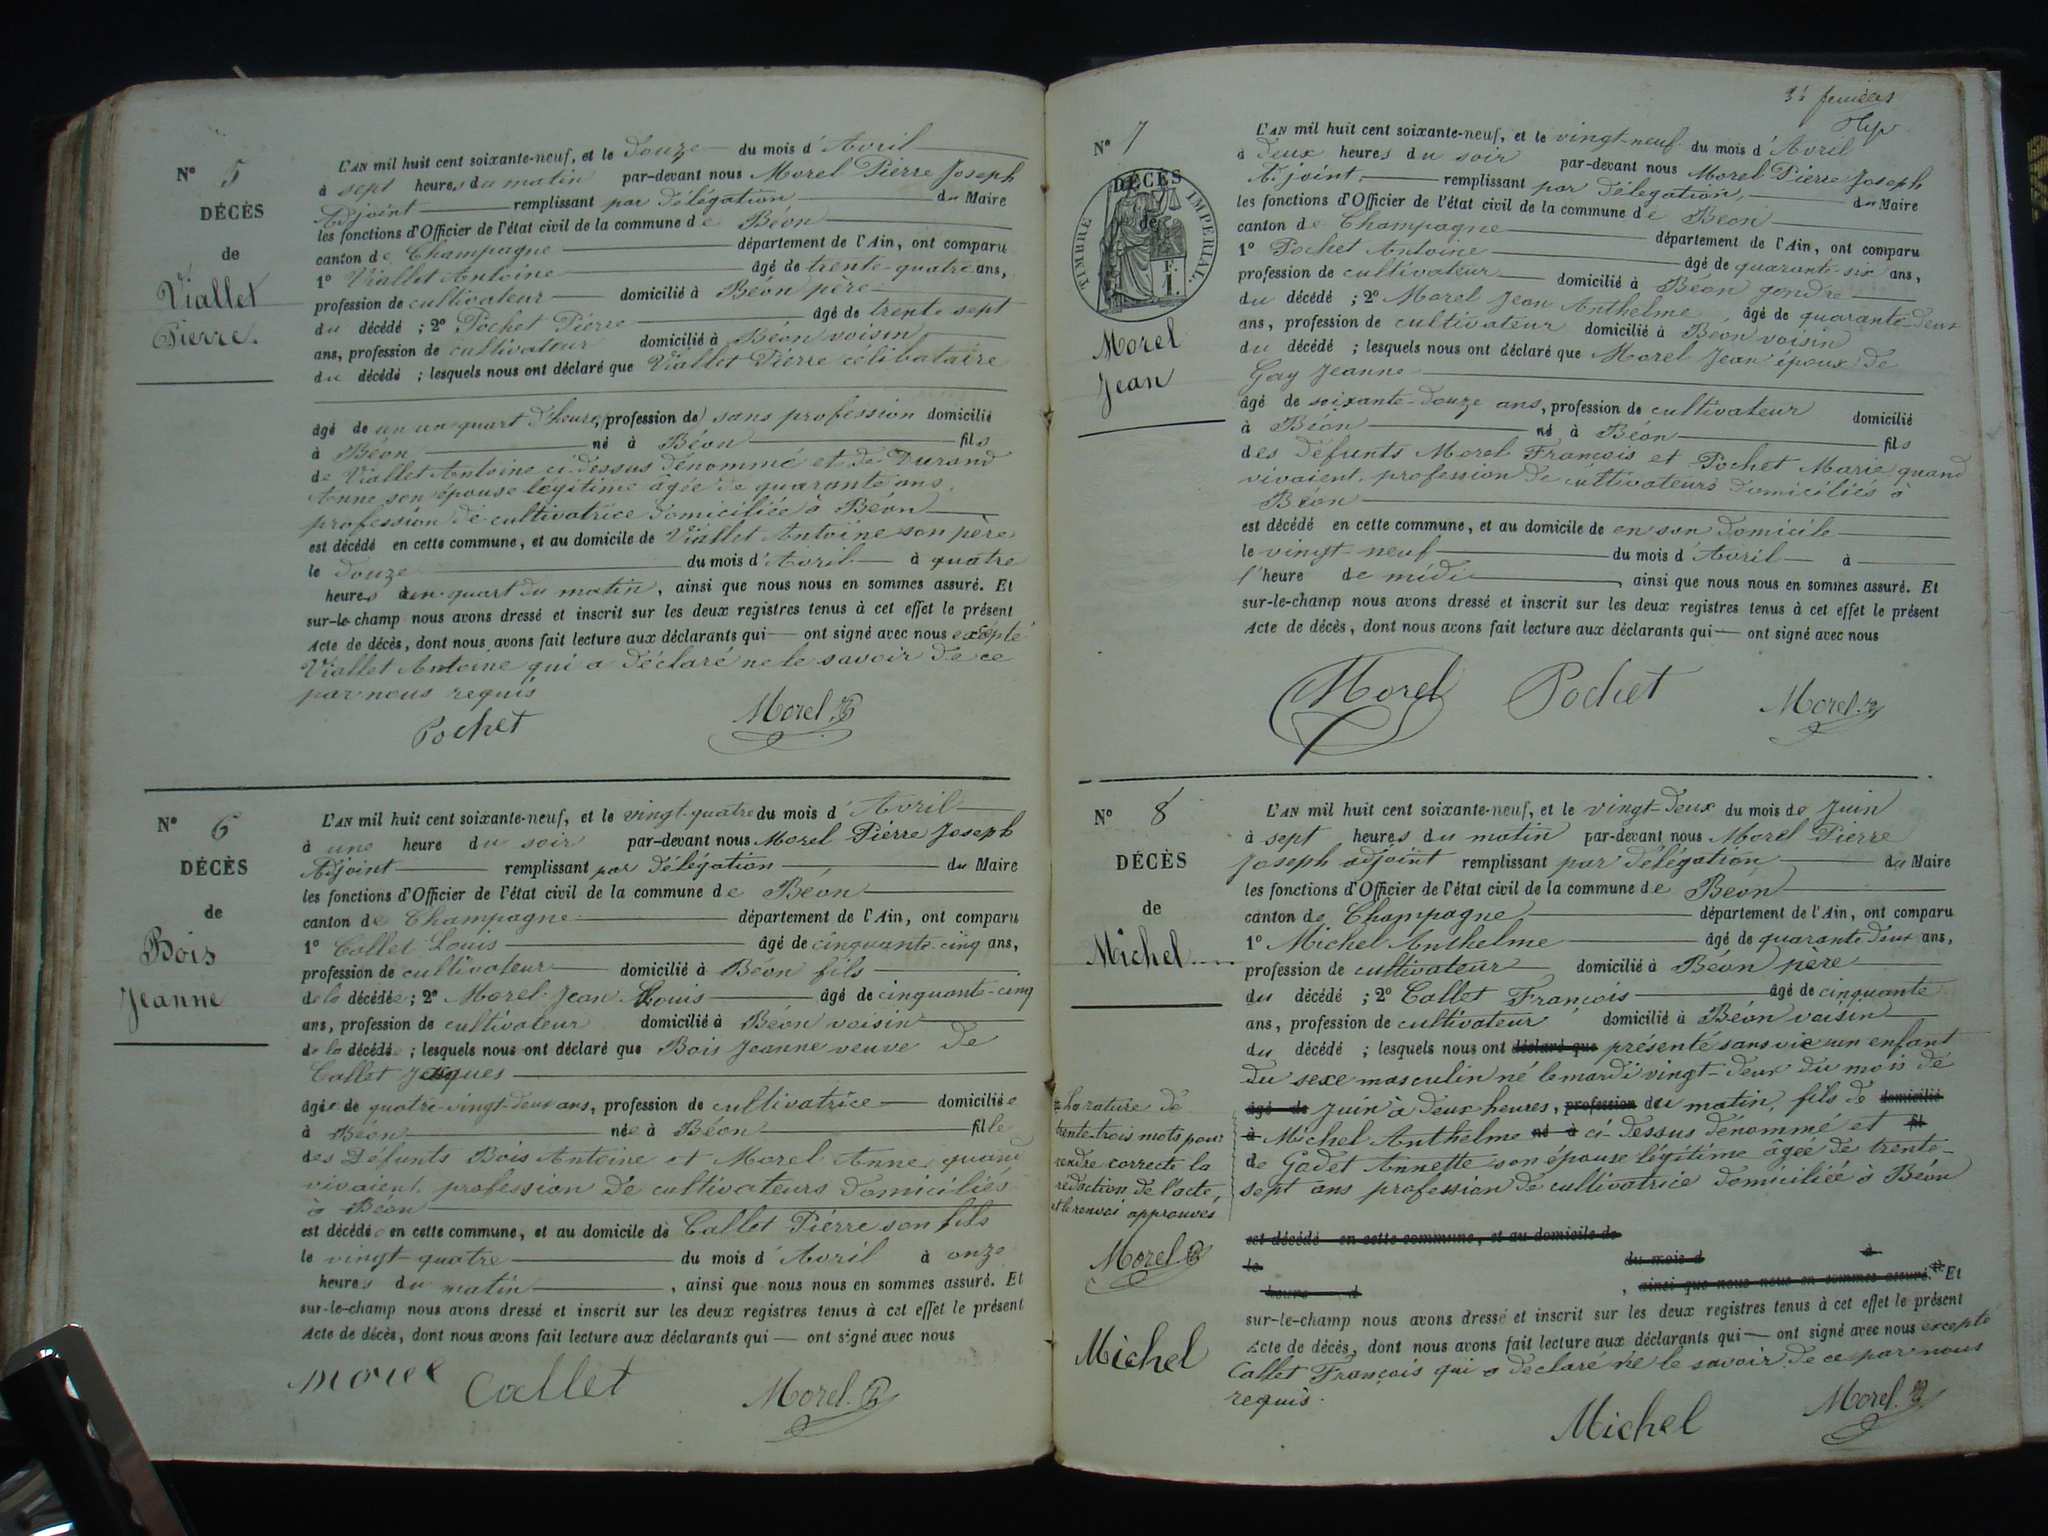 N° 5
DÉCÈS
de
Viallet
Pierre.
L'AN mil huit cent soixante-neuf, et le douze du mois d'Avril
à sept heures du matin par-devant nous Morel Pierre Joseph
Adjoint remplissant par délégation du Maire
les fonctions d'Officier de l'état civil de la commune de Béon
canton de Champagne département de l'Ain, ont comparu
1° Viallet Antoine âgé de trente-quatre ans,
profession de cultivateur domicilié à Béon père
du décédé ; 2° Pochet Pierre âgé de trente sept
ans, profession de cultivateur domicilié à Béon voisin
du décédé ; lesquels nous ont déclaré que Viallet Pierre célibataire
âgé de un un quart d'heure, profession de sans profession domicilié
à Béon né à Béon fils
de Viallet Antoine ci-dessus dénommé et de Durand
Anne son épouse légitime âgée de quarante ans,
profession de cultivatrice domiciliée à Béon
est décédé en cette commune, et au domicile de Viallet Antoine son père
le douze du mois d'Avril à quatre
heures un quart du matin, ainsi que nous nous en sommes assuré. Et
sur-le-champ nous avons dressé et inscrit sur les deux registres tenus à cet effet le présent
Acte de décès, dont nous avons fait lecture aux déclarants qui ont signé avec nous excepté
Viallet Antoine qui a déclaré ne le savoir de ce
par nous requis
Pochet Morel
N° 6
DÉCÈS
de
Bois
Jeanne
L'AN mil huit cent soixante-neuf, et le vingt-quatre du mois d'Avril
à une heure du soir par-devant nous Morel Pierre Joseph
Adjoint remplissant par délégation du Maire
les fonctions d'Officier de l'état civil de la commune de Béon
canton de Champagne département de l'Ain, ont comparu
1° Callet Louis âgé de cinquante-cinq ans,
profession de cultivateur domicilié à Béon fils
de la décédée ; 2° Morel Jean Louis âgé de cinquante-cinq
ans, profession de cultivateur domicilié à Béon voisin
de la décédée ; lesquels nous ont déclaré que Bois Jeanne veuve de
Callet Jacques
âgée de quatre-vingt-deux ans, profession de cultivatrice domiciliée
à Béon née à Béon fille
des défunts Bois Antoine et Morel Anne quand
vivaient, profession de cultivateurs domiciliés
à Béon
est décédée en cette commune, et au domicile de Callet Pierre son fils
le vingt-quatre du mois d'Avril à onze
heures du matin, ainsi que nous nous en sommes assuré. Et
sur-le-champ nous avons dressé et inscrit sur les deux registres tenus à cet effet le présent
Acte de décès, dont nous avons fait lecture aux déclarants qui ont signé avec nous
morel Callet Morel
N° 7
DÉCÈS
de
TIMBRE IMPÉRIAL
F.
1.
Morel
Jean
L'AN mil huit cent soixante-neuf, et le vingt-neuf du mois d'Avril
à deux heures du soir par-devant nous Morel Pierre Joseph
Adjoint remplissant par délégation, du Maire
les fonctions d'Officier de l'état civil de la commune de Béon
canton de Champagne département de l'Ain, ont comparu
1° Pochet Antoine âgé de quarante-six ans,
profession de cultivateur domicilié à Béon gendre
du décédé ; 2° Morel Jean Anthelme âgé de quarante deux
ans, profession de cultivateur domicilié à Béon voisin
du décédé ; lesquels nous ont déclaré que Morel Jean époux de
Gay Jeanne
âgé de soixante-douze ans, profession de cultivateur domicilié
à Béon né à Béon fils
des défunts Morel François et Pochet Marie quand
vivaient, profession de cultivateurs domiciliés à
Béon
est décédé en cette commune, et au domicile de en son domicile
le vingt-neuf du mois d'Avril à
l'heure de midi, ainsi que nous nous en sommes assuré. Et
sur-le-champ nous avons dressé et inscrit sur les deux registres tenus à cet effet le présent
Acte de décès, dont nous avons fait lecture aux déclarants qui ont signé avec nous
Morel Pochet Morel
N° 8
DÉCÈS
de
Michel
L'AN mil huit cent soixante-neuf, et le vingt-deux du mois de Juin
à sept heures du matin par-devant nous Morel Pierre
Joseph adjoint remplissant par délégation du Maire
les fonctions d'Officier de l'état civil de la commune de Béon
canton de Champagne, département de l'Ain, ont comparu
1° Michel Anthelme âgé de quarante deux ans,
profession de cultivateur domicilié à Béon père
du décédé ; 2° Callet François âgé de cinquante
ans, profession de cultivateur domicilié à Béon voisin
du décédé ; lesquels nous ont déclaré que présenté sans vie un enfant
du sexe masculin né le mardi vingt-deux du mois de
âgé de Juin à deux heures, profession du matin, fils de domicilié
à Michel Anthelme né à ci-dessus dénommé et fil
de Gadet Annette son épouse légitime âgée de trente-
sept ans profession de cultivatrice domiciliée à Béon
est décédé en cette commune, et au domicile de
le du mois d à
heure d , ainsi que nous nous en sommes assuré. Et
sur-le-champ nous avons dressé et inscrit sur les deux registres tenus à cet effet le présent
Acte de décès, dont nous avons fait lecture aux déclarants qui ont signé avec nous excepté
Callet François qui a déclaré ne le savoir de ce par nous
requis.
la rature de
trente-trois mots pour
rendre correcte la
rédaction de l'acte,
et le renvoi approuvés
Morel
Michel
Michel Morel